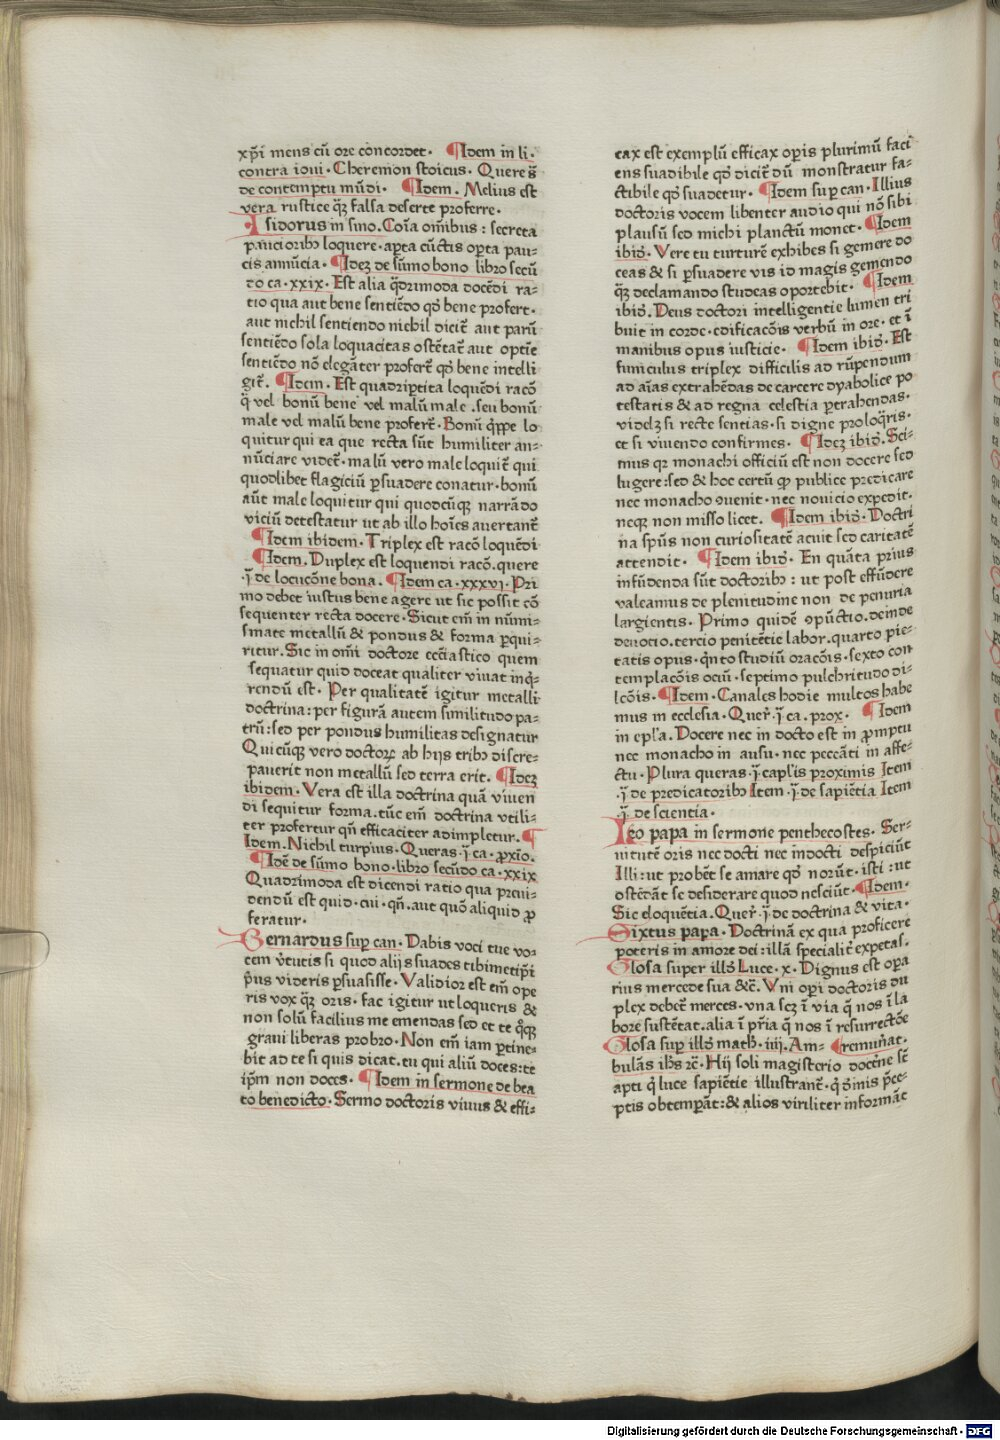 xp̄i mens cū ore concordet· ¶Idem in li·
contra ioui· Cheremon stoicus· Quere s̄
de contemptu mūdi· ¶Idem· Melius est
vera rustice q̄ꝫ falsa deserte proferre·
Isidorus in sino· Cōia om̄ibus : secreta
paucioribꝰ loquere· aperta cūctis operta pau-
cis annūcia· ¶Ideꝫ de sūmo bono libro secū
do ca·xxix· Est alia q̄drimoda docēdi ra-
tio qua aut bene sentiēdo qđ bene profert·
aut nichil sentiendo nichil dicit̄ aut parū
sentiēdo sola loquacitas ostētat̄ aut optīe
sentiēdo nō elegāter profert̄ qđ bene intelli
git̄· ¶Idem· Est quadriptita loquēdi racō
q̄ vel bonū bene vel malū male· seu bonū
male vel malū bene profert̄· Bonū q̄ppe lo
quitur qui ea que recta sūt humiliter an-
nūciare videt̄· malū vero male loquit̄ qui
quodlibet flagiciū ꝑsuadere conatur· bonū
aūt male loquitur qui quodcūqꝫ narrādo
viciū detestatur ut ab illo hoīes auertant̄
¶Idem ibidem· Triplex est racō loquēdi
¶Idem· Duplex est loquendi racō· quere
·j̄· de locucōne bona· ¶Idem ca·xxxvi· Pri
mo debet iustus bene agere ut sic possit cō
sequenter recta docere· Sicut em̄ in numi-
smate metallū & pondus & forma ꝑqui-
ritur· Sic in om̄i doctore ecc̄iastico quem
sequatur quid doceat qualiter viuat inq̄-
rendū est· Per qualitatē igitur metalli
doctrina: per figurā autem similitudo pa-
trū: sed per pondus humilitas designatur
Quicūqꝫ vero doctoꝝ ab hijs tribꝰ discre-
pauerit non metallū sed terra erit· ¶Ideꝫ
ibidem· Vera est illa doctrina quā viuen
di sequitur forma· tūc em̄ doctrina vtili-
ter profertur qn̄ efficaciter adimpletur· ¶
Idem· Nichil turpius· Queras ·j̄· ca· ꝓxīo·
¶Idē de sūmo bono· libro secūdo ca·xxix
Quadrimoda est dicendi ratio qua preui-
dendū est quid· cui· qn̄· aut quō aliquid ꝓ
feratur·
Bernardus suꝑ can· Dabis voci tue vo-
cem ṽtutis si quod alijs suades tibimetip̄i
p̄us videris ꝑsuasisse· Validior est em̄ ope
ris vox q̄ꝫ oris· fac igitur ut loqueris &
non solū facilius me emendas sed et te q̊qꝫ
graui liberas probro· Non em̄ iam ꝑtine-
bit ad te si quis dicat· tu qui aliū doces: te
ip̄m non doces· ¶Idem in sermone de bea
to benedicto· Sermo doctoris viuus & effi-
cax est exemplū efficax oꝑis plurimū faci
ens suadibile qđ dicit̄ dū monstratur fa-
ctibile qđ suadetur· ¶Idem suꝑ can· Illius
doctoris vocem libenter audio qui nō sibi
plausū sed michi planctū monet· ¶Idem
ibiđ· Vere tu turturē exhibes si gemere do
ceas & si ꝑsuadere vis id magis gemendo
q̄ꝫ declamando studeas oportebit· ¶Idem
ibiđ· Deus doctori intelligentie lumen tri
buit in corde· edificacōis verbū in ore· et ī
manibus opus iusticie· ¶Idem ibiđ· Est
funiculus triplex difficilis ad rūpendum
ad aīas extrahēdas de carcere dyabolice po
testatis & ad regna celestia ꝑtrahendas·
videlꝫ si recte sentias· si digne proloq̄ris·
et si viuendo confirmes· ¶Ideꝫ ibiđ· Sci-
mus qꝛ monachi officiū est non docere sed
lugere: sed & hoc certū qꝙ publice predicare
nec monacho ꝯuenit· nec nouicio expedit·
necqꝫ non misso licet· ¶Idem ibiđ· Doctri
na sp̄us non curiositatē acuit sed caritatē
attendit· ¶Idem ibiđ· En quāta prius
infūdenda sūt doctoribꝰ : ut post effūdere
valeamus de plenitudine non de penuria
largientis· Primo quidē ꝯpūctio· deinde
deuocio· tercio penitētie labor· quarto pie-
tatis opus· q̄nto studiū oracōis· sexto con
templacōis ociū· septimo pulchritudo di-
lcōis· ¶Idem· Canales hodie multos habe
mus in ecclesia· Quer̄· ·j̄· ca· prox· ¶Idem
in epl̄a· Docere nec in docto est in ꝓmptu
nec monacho in ausu· nec peccāti in affe-
ctu· Plura queras ·j̄· capl̄is proximis Item
·j̄· de predicatoribꝰ Item ·j̄· de sapiētia Item
·j̄· de scientia·
Leo papa in sermone penthecostes· Ser-
uitutē oris nec docti nec indocti despiciūt
Illi: ut probēt se amare qđ norūt· isti: ut
ostēdāt se desiderare quod nesciūt· ¶Idem·
Sic eloquētia· Quer̄· ·j̄· de doctrina & vita·
Sixtus papa· Doctrinā ex qua proficere
poteris in amore dei: illā specialit̄ expetas·
Glosa super illđ Luce·x· Dignus est oꝑa
rius mercede sua &c̄· Vni oꝑi doctoris du
plex debet̄ merces· vna scꝫ ī via q̄ nos ī la
bore sustētat· alia ī pr̄ia q̄ nos ī resurrectōe
Glosa suꝑ illđ math̄·iiij· Am- ¶remūat·
bulās ih̄s ꝛc̄· Hij soli magisterio docēne sē
apti q̄ luce sapiētie illustrant̄· q̄ ōīnis p̄ce-
ptis obtemꝑāt: & alios viriliter informāt
Digitalisierung gefördert durch die Deutsche Forschungsgemeinschaft - DFG